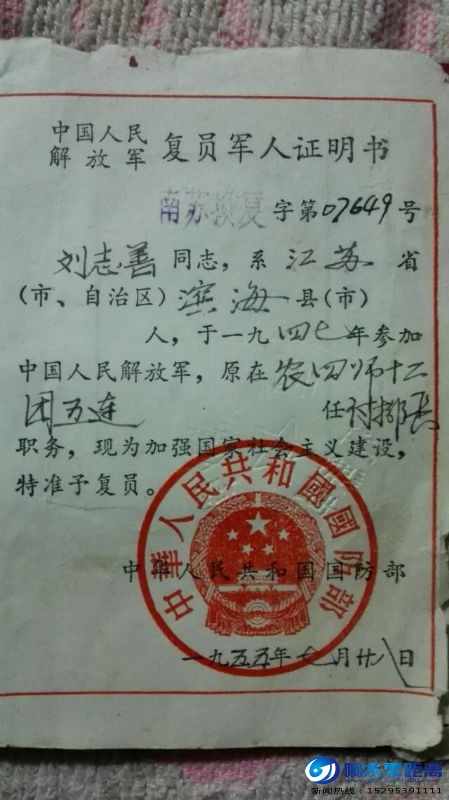 中国人民
解放军 复员军人证明书
南苏换复 字第07649号
刘志善同志，系江苏省
（市、自治区）滨海县（市）
人，于一九四七年参加
中国人民解放军，原在农四师十二
团五连 任付排长
职务，现为加强国家社会主义建设，
特准予复员。
中华人民共和国国防部
中華人民共和國國防部
一九五五年七月廿八日
响水零距离
新闻热线：15295391111